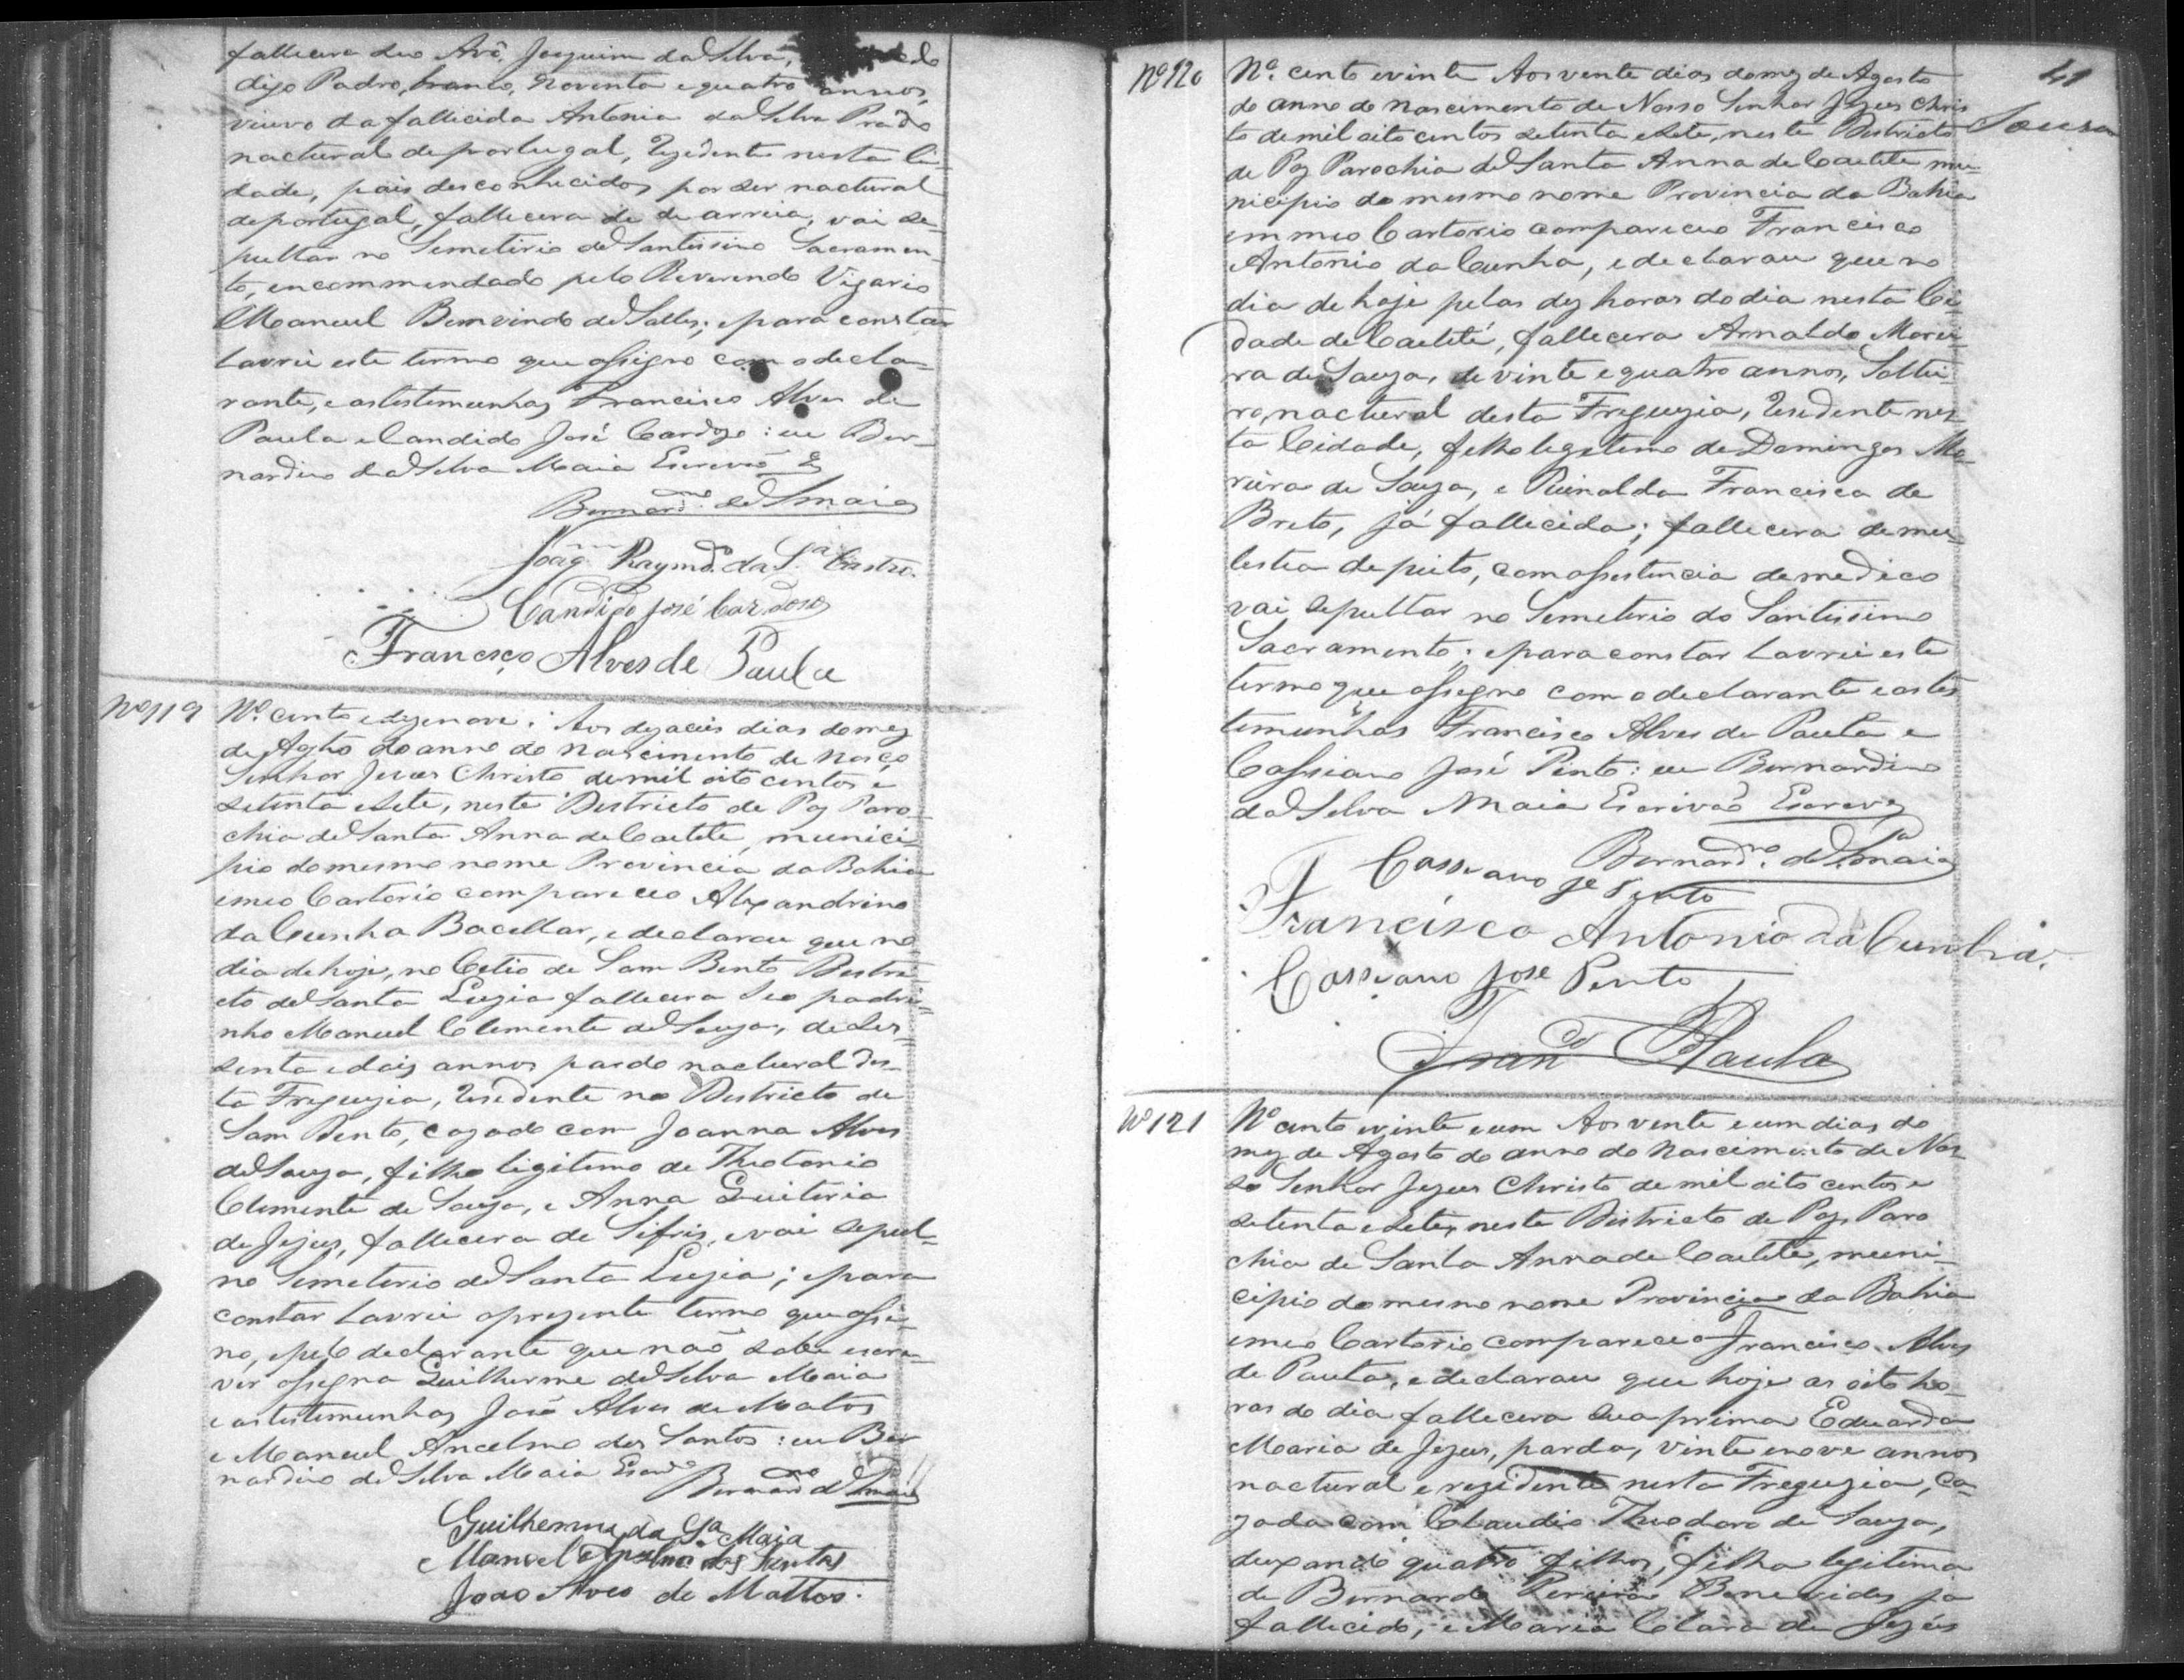 fallecera seo Avô, Joaquim da Silva,
digo Padro, branco, noventa e quatro annos,
viuvo da fallicida Antonia da Silva Prado
nactural de portugal, Rezidente nesta Ci-
dade, pais desconhecidos por ser nactural
de portugal, fallecera de de arreia, vai se-
pultar no Semetirio do Santissimo Sacramen-
to, encommendado pelo Reverendo Vigario
Manuel Bemvindo de Salles; e para constar
Lavrei este termo que assigno com o decla-
rante, e as testemunhas Francisco Alves de
Paula e Candido José Cardozo: eu Ber-
nardino da Silva Maia Escrivão
Bernard.no da S.a Maia
Joaq.m Raymd.o da S.a Castro.
Candido José Cardoso
Francisco Alves de Paula
Nº 119 Nº cento e dezenove. Aos dezaceis dias do mez
de Agto do anno do Nascimento de Nosço
Senhor Jesus Christo de mil oito centos e
setenta e sete, neste Destricto de Paz Paro-
chia de Santa Anna de Caetete, munici-
pio do mesmo nome Provincia da Bahia
e meo Cartorio compareceo Alexandrino
da Cunha Bacellar, e declarou que no
dia de hoje, no Citio de Sam Bento Destri-
cto de Santa Luzia fallecera seo padri-
nho Manuel Clemente de Souza, de ses-
senta e dois annos pardo nactural des-
ta Freguezia, Residente no Destricto de
Sam Bento, cazado com Joanna Alves
de Souza, filho ligitimo de Theotonio
Clemente de Souza, e Anna Quiteria
de Jezus, fallecera de Sifris, e vai sepul-
no Semeterio de Santa Luzia; e para
constar Lavrei o prezente termo que assi-
no, e pelo declarante que não sabe escre-
ver assigna Guilherme da Silva Maia
e as testemunhas João Alves de Matos
e Manuel Ancelmo dos Santos: eu Ber
nardino da Silva Maia Escrvo
Bernard.no da S.a Maia
Guilherme da S.a Maia
Manoel Anselmo dos Santos
João Alves de Mattos.
41
Souza
Nº 120 Nº. cento e vinte Aos vente dias do mez de Agosto
do anno do Nascimento de Nosso Senhor Jezus Chris
to de mil oito centos setenta e sete, neste Destricto
de Paz Parochia de Santa Anna de Caetete mu-
nicipio do mesmo nome Provincia da Bahia
em meo Cartorio compareceo Francisco
Antonio da Cunha, e declarou que no
dia de hoje pelas dez horas do dia nesta Ci-
dade de Caetité, fallecera Arnaldo Morei-
ra de Souza, de vinte e quatro annos, Soltei-
ro, nactural desta Freguezia, Residente nes-
ta Cidade, filho legitimo de Domingos Mo-
reira de Souza, e Reinalda Francisca de
Brito, já fallecida; fallecera de mo-
lestia de peito, com assistencia de medico
vai sepultar no Semeterio do Santissimo
Sacramento; e para constar Lavrei este
termo que assigno com o declarante e as tes
temunhas Francisco Alves de Paula e
Cassiano José Pinto: eu Bernardino
da Silva Maia Escrivão Escrevy
Bernard.no da S.a Maia
Cassiano Je Pinto
Francisco Antonio da Cunha.
Cassiano Jose Pinto
Fran.co Paula
Nº 121 Nº cento e vinte e um Aos vente e um dias do
mez de Agosto do anno do Nascimento de Nos
so Senhor Jezus Christo de mil oito centos e
setenta e sete, neste Districto de Paz, Paro
chia de Santa Anna de Caetité, muni-
cipio do mesmo nome Provincia da Bahia
e meo Cartorio compareceo Francisco Alves
de Paula, e declarou que hoje as oito ho-
ras do dia fallecera sua prima Eduarda
Maria de Jezus, parda, vinte e nove annos
nactural e rezidente nesta Freguezia, ca-
zada com Claudio Theodoro de Souza,
deixando quatro filhos, filha legitima
de Bernardo Pereira Benevides ja
fallecido, e Maria Clara de Jezus